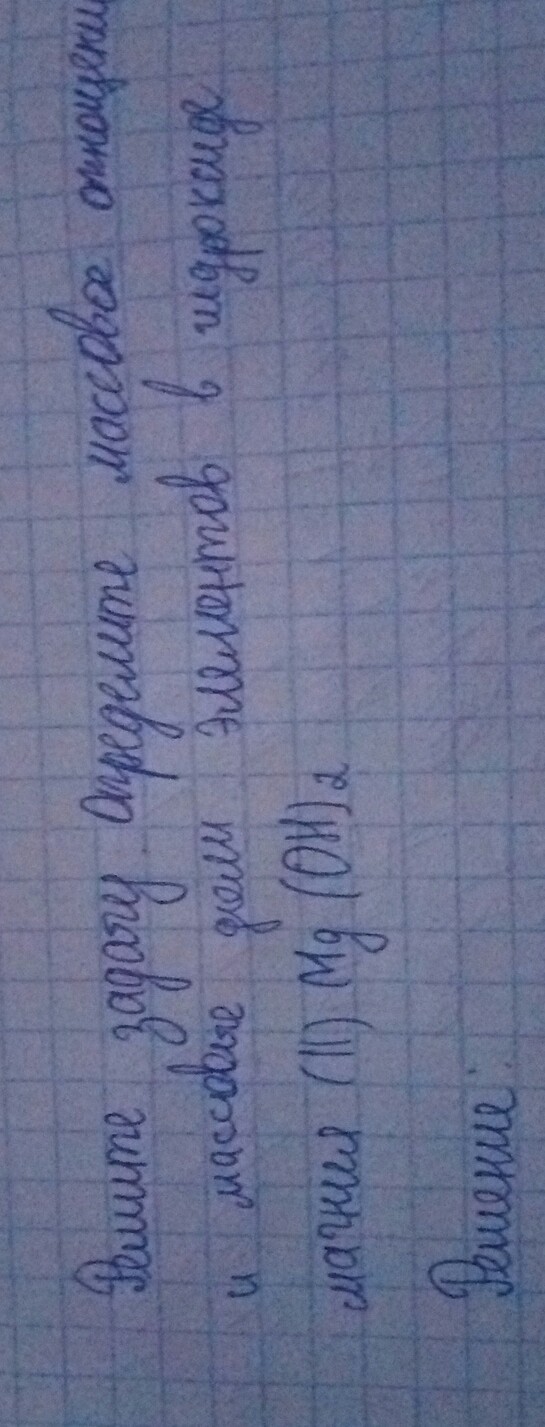 Решите задачу. Определите массовое отношени
и массовые доли элементов в гидроксиде
магния (II) Mg (OH)2
Решение: